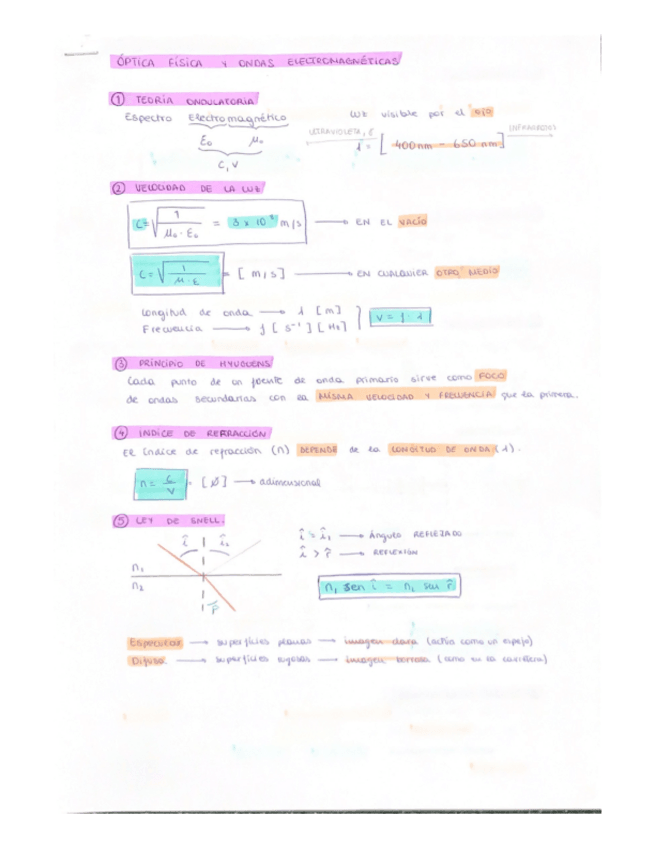 ÓPTICA FÍSICA Y ONDAS ELECTROMAGNÉTICAS
① TEORÍA ONDULATORIA
Espectro Electromagnético
luz visible por el OJO
ε₀ μ₀
C, V
ULTRAVIOLETA, E
λ = [ 400 nm - 650 nm ]
INFRARROJOS
② VELOCIDAD DE LA LUZ
C = √(1 / μ₀ · ε₀) = 3 x 10⁸ m/s → EN EL VACÍO
C = √(1 / μ · ε) = [ m/s ] → EN CUALQUIER OTRO MEDIO
Longitud de onda → λ [m]
Frecuencia → f [ s⁻¹ ] [ Hz ]
V = f · λ
③ PRINCIPIO DE HYUGUENS
Cada punto de un frente de onda primario sirve como FOCO
de ondas secundarias con la MISMA VELOCIDAD Y FRECUENCIA que la primera.
④ INDICE DE REFRACCIÓN
El índice de refracción (n) DEPENDE de la LONGITUD DE ONDA (λ).
n = C / V = [ Ø ] → adimensional
⑤ LEY DE SNELL.
î î₁
n₁
n₂
r̂
î = î₁ → Ángulo REFLEJADO
î > r̂ → REFLEXIÓN
n₁ sen î = n₂ sen r̂
Especular → superficies planas → imagen clara (actúa como un espejo)
Difusa → superficies rugosas → imagen borrosa (como en la carretera)